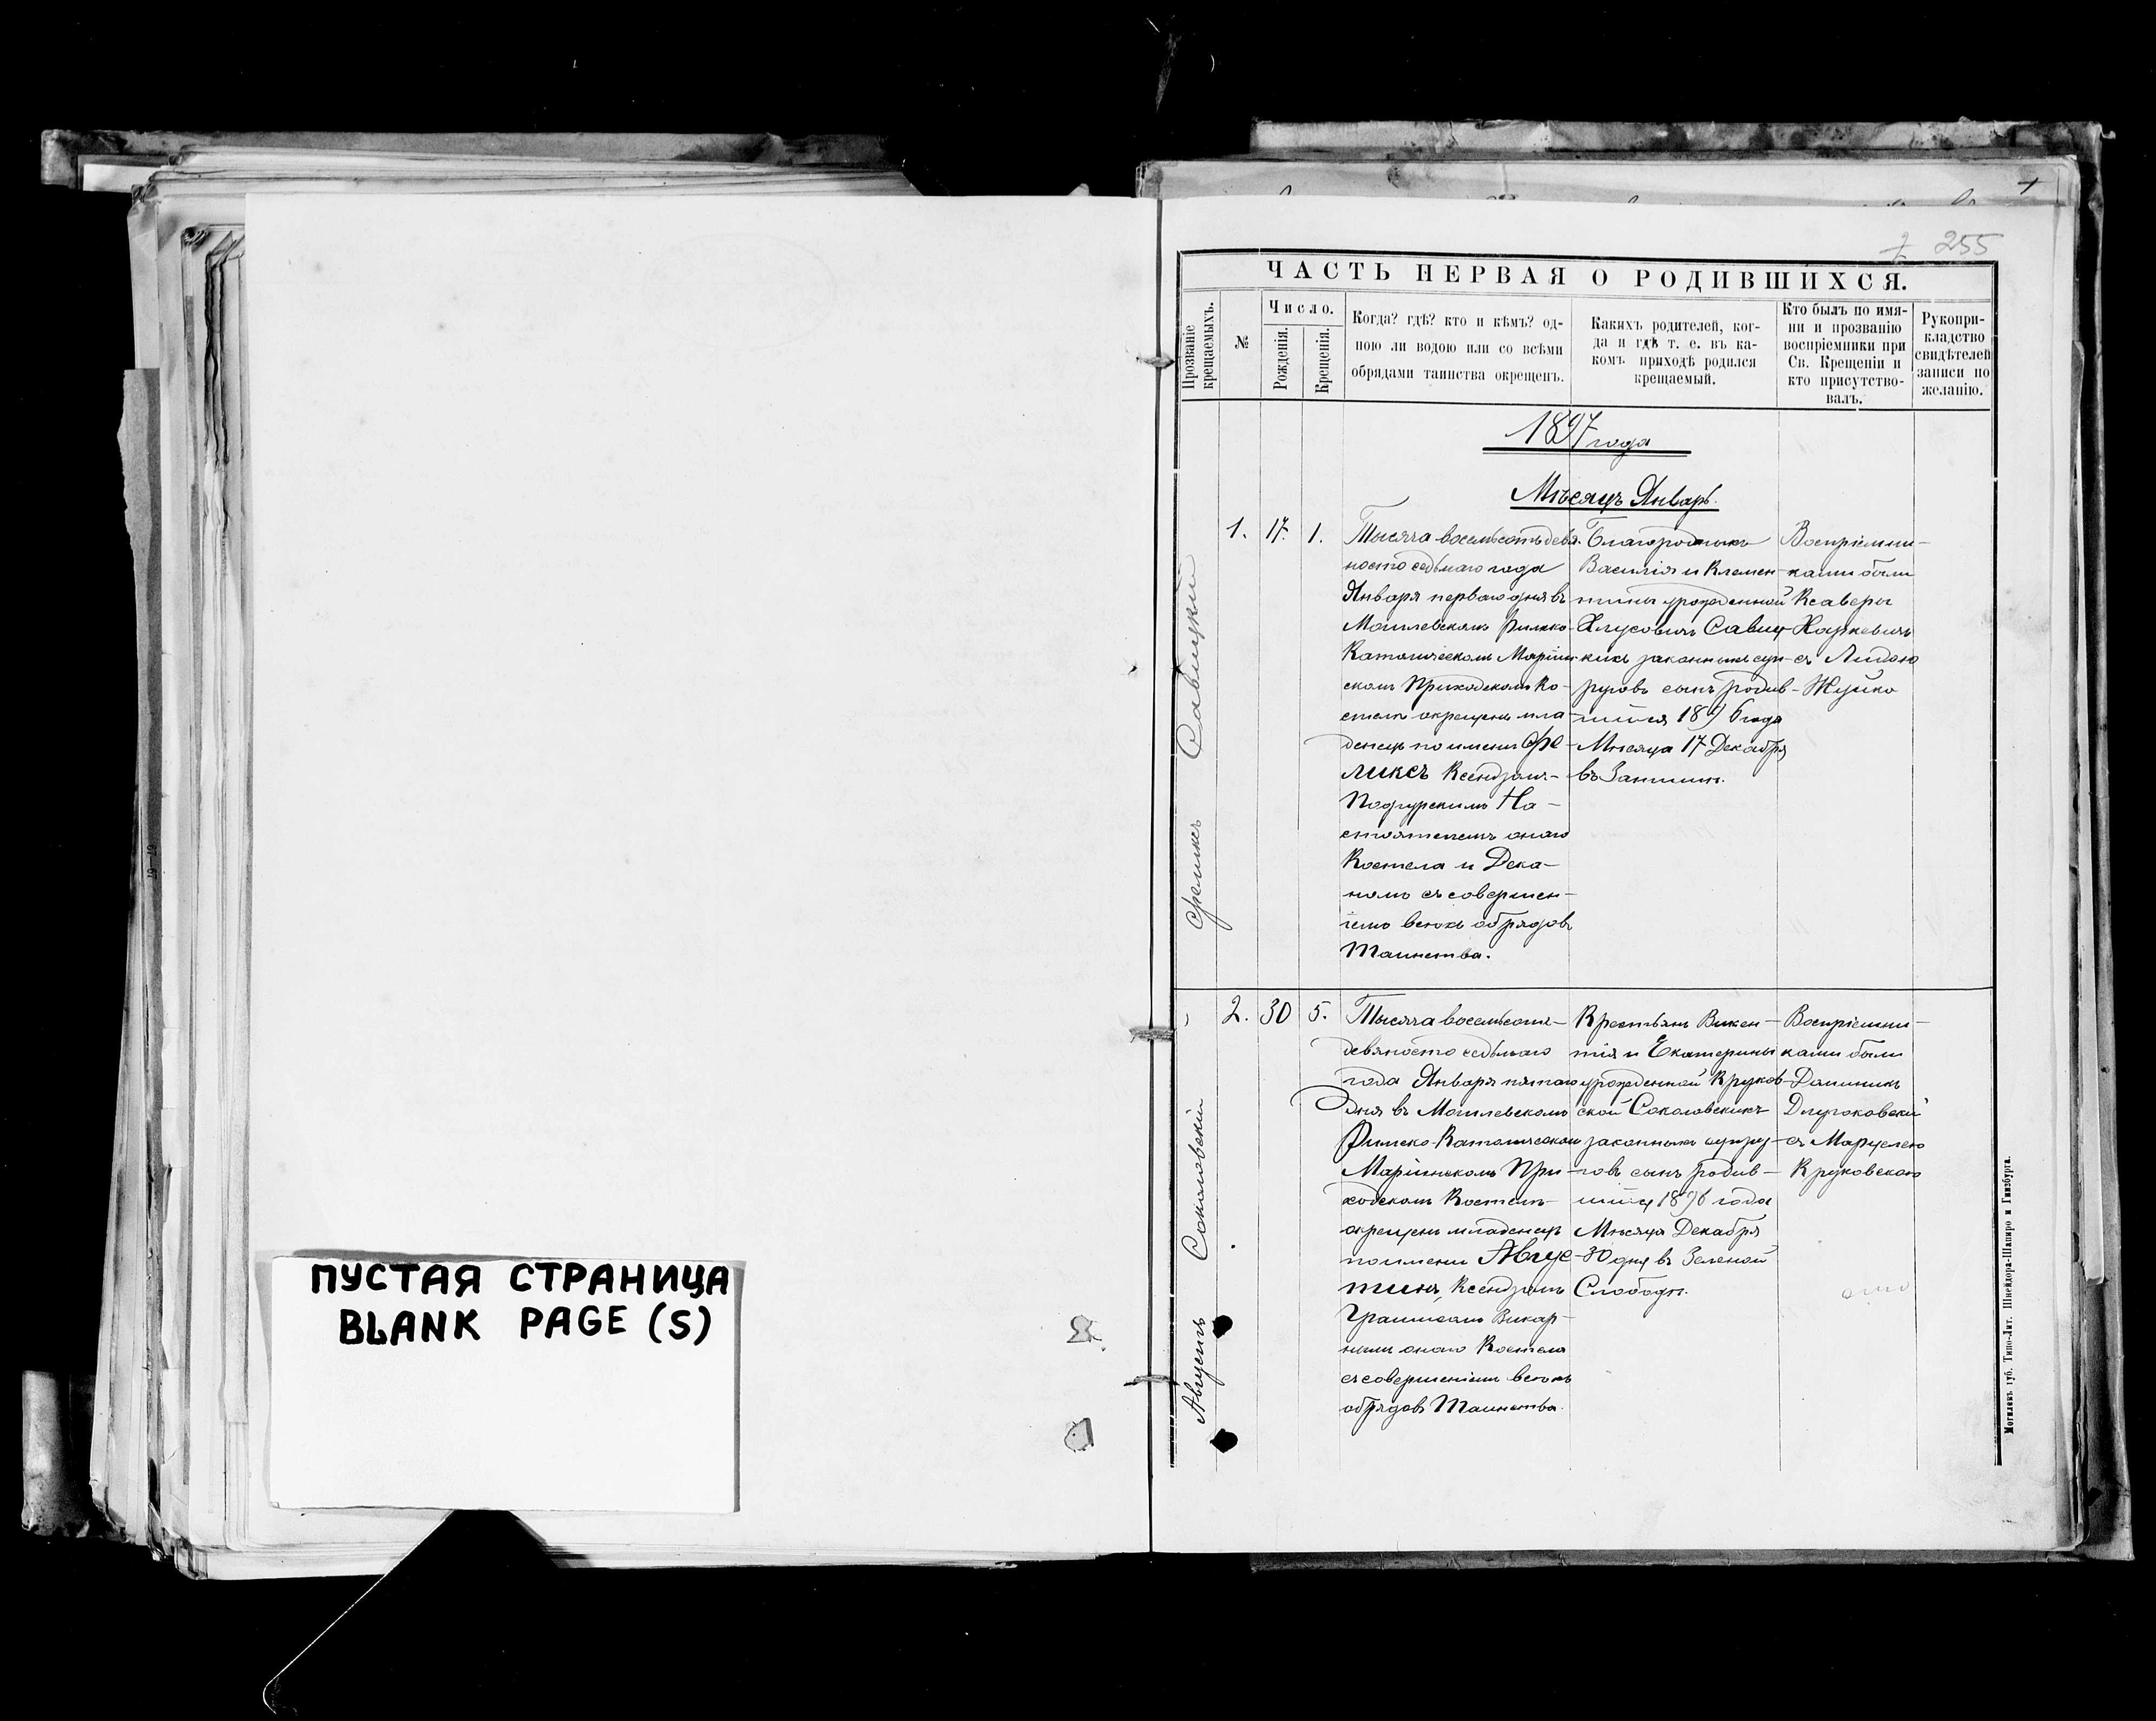 ПУСТАЯ СТРАНИЦА
BLANK PAGE (S)
255
ЧАСТЬ ПЕРВАЯ О РОДИВШИХСЯ.
Прозваніе крещаемыхъ.
№
Число.
Рожденія.
Крещенія.
Когда? гдѣ? кто и кѣмъ? од-
ною ли водою или со всѣми
обрядами таинства окрещенъ.
Какихъ родителей, ког-
да и гдѣ т. е. въ ка-
комъ приходѣ родился
крещаемый.
Кто былъ по имя-
ни и прозванію
воспріемники при
Св. Крещеніи и
кто присутство-
валъ.
Рукопри-
кладство
свидѣтелей
записи по
желанію.
1897 года
Мѣсяцъ Январь.
Феликсъ Савицкій
1.
17.
1.
Тысяча восемьсотъ девя-
носто седьмаго года
Января перваго дня въ
Могилевскомъ Римско-
Католическомъ Маріин-
скомъ Приходскомъ Ко-
стелѣ окрещенъ мла-
денецъ по имени Фе-
ликсъ Ксендзомъ-
Подгурскимъ На-
стоятелемъ онаго
Костела и Дека-
номъ съ совершен-
іемъ всѣхъ обрядовъ
Таинства.
Благородныхъ
Василія и Клемен-
тины урожденной
Савиц-
кихъ законныхъ суп-
руговъ сынъ родив-
шійся 1896 года
Мѣсяца 17 Декабря
въ
Воспріемни-
ками были
Ксаверы
Харкевичъ
съ Лидою
Жуйко
Августъ Соколовскій
2.
30
5.
Тысяча восемьсотъ-
девяносто седьмаго
года Января пятаго
дня въ Могилевскомъ
Римско-Католическомъ
Маріинскомъ При-
ходскомъ Костелѣ-
окрещенъ младенецъ
по имени Авгус-
тинъ, Ксендзомъ
Викар-
нымъ онаго Костела
съ совершеніемъ всѣхъ
обрядовъ Таинства.
Крестьянъ Викен-
тія и Екатерины
урожденной Круков-
ской Соколовскихъ
законныхъ супру-
говъ сынъ родив-
шійся 1896 года
Мѣсяца Декабря
30 дня въ Зеленой
Слободѣ.
Воспріемни-
ками были
Доминикъ
съ Марцелею
Круковскою
Могилевъ губ. Типо-Лит. Шнейдора-Шапиро и Гинзбурга.